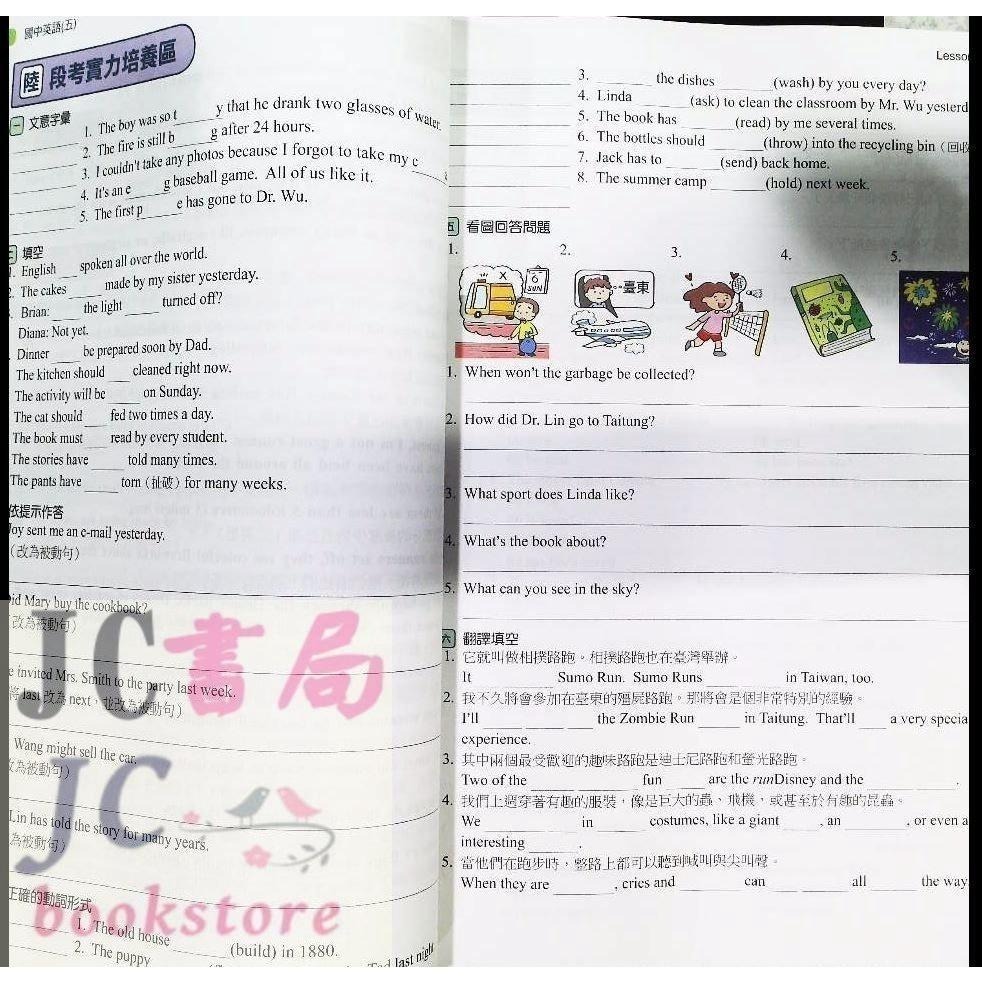 國中英語(五)
陸 段考實力培養區
一 文意字彙
1. The boy was so t______y that he drank two glasses of water.
2. The fire is still b______g after 24 hours.
3. I couldn't take any photos because I forgot to take my c______
4. It's an e______g baseball game. All of us like it.
5. The first p______e has gone to Dr. Wu.
填空
1. English ___ spoken all over the world.
2. The cakes ____ made by my sister yesterday.
Brian: ____ the light ____ turned off?
Diana: Not yet.
Dinner ____ be prepared soon by Dad.
The kitchen should ___ cleaned right now.
The activity will be ____ on Sunday.
The cat should ___ fed two times a day.
The book must ____ read by every student.
The stories have ____ told many times.
The pants have ____ torn (扯破) for many weeks.
依提示作答
Joy sent me an e-mail yesterday.
(改為被動句)
Mary buy the cookbook?
改為被動句)
invited Mrs. Smith to the party last week.
將 last 改為 next，並改為被動句)
Wang might sell the car.
為被動句)
Lin has told the story for many years.
為被動句)
正確的動詞形式
1. The old house ______ (build) in 1880.
2. The puppy
last night
Lesson
3. ______ the dishes ______ (wash) by you every day?
4. Linda ______ (ask) to clean the classroom by Mr. Wu yesterd
5. The book has ______ (read) by me several times.
6. The bottles should ______ (throw) into the recycling bin (回收
7. Jack has to ______ (send) back home.
8. The summer camp ______ (hold) next week.
五 看圖回答問題
1. 2. 3. 4. 5.
X 6 SUN
臺東
1. When won't the garbage be collected?
2. How did Dr. Lin go to Taitung?
3. What sport does Linda like?
4. What's the book about?
5. What can you see in the sky?
六 翻譯填空
1. 它就叫做相撲路跑。相撲路跑也在臺灣舉辦。
It ______ ______ Sumo Run. Sumo Runs ______ ______ in Taiwan, too.
2. 我不久將會參加在臺東的殭屍路跑。那將會是個非常特別的經驗。
I'll ______ ______ the Zombie Run ______ in Taitung. That'll ____ a very specia
experience.
3. 其中兩個最受歡迎的趣味路跑是迪士尼路跑和螢光路跑。
Two of the ______ ______ fun ______ are the runDisney and the ______ ______.
4. 我們上週穿著有趣的服裝，像是巨大的蟲、飛機，或甚至於有趣的昆蟲。
We ______ ______ in ______ costumes, like a giant ______, an ______, or even a
interesting ______.
5. 當他們在跑步時，整路上都可以聽到喊叫與尖叫聲。
When they are ______, cries and ______ can ____ ____ all ____ the way.
JC書局
JC
bookstore